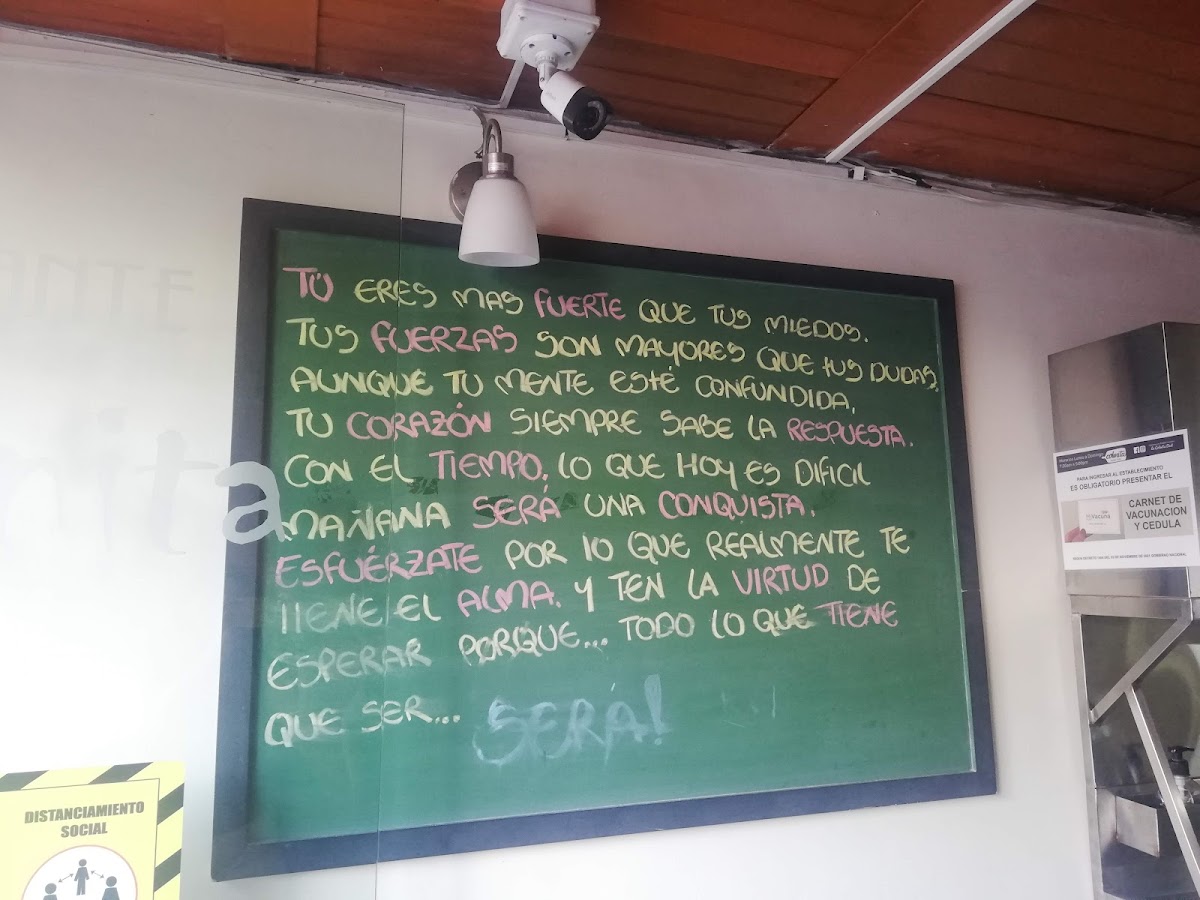 TÚ ERES MAS FUERTE QUE TUS MIEDOS.
TUS FUERZAS SON MAYORES QUE tUS DUDAS,
AUNQUE TU MENTE ESTÉ CONFUNDIDA,
TU CORAZÓN SIEMPRE SABE LA RESPUESTA.
CON EL TIEMPO, LO QUE HOY ES DIFICIL
MAÑANA SERÁ UNA CONQUISTA.
ESFUÉRZATE POR lO QUE REALMENTE TE
llENE EL ALMA. Y TEN LA VIRTUD DE
ESPERAR PORQUE... TODO LO QUE TIENE
QUE SER... SERÁ!
PARA INGRESAR AL ESTABLECIMIENTO
ES OBLIGATORIO PRESENTAR EL
CARNET DE
VACUNACION
Y CEDULA
DISTANCIAMIENTO
SOCIAL